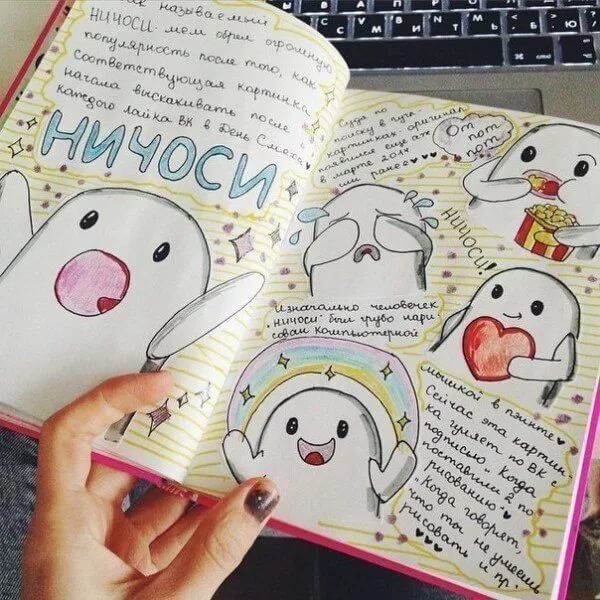 так называемый
НИЧОСИ-мем обрел огромную
популярность после того, как
соответствующая картинка
начала выскакивать после
каждого лайка ВК в День Смеха.
НИЧОСИ
Судя по
поиску в гугл
картинках, оригинал
появился еще аж
в марте 2011
или ранее
От
пот
пот
НИЧОСИ!
Изначально человечек
"ничоси" был грубо нари
сован компьютерной
мышкой в пэинте
Сейчас эта картин
ка гуляет по ВК с
подписью "Когда
поставили 2 по
рисованию"
"Когда говорят,
что ты не умеешь
рисовать и пр.